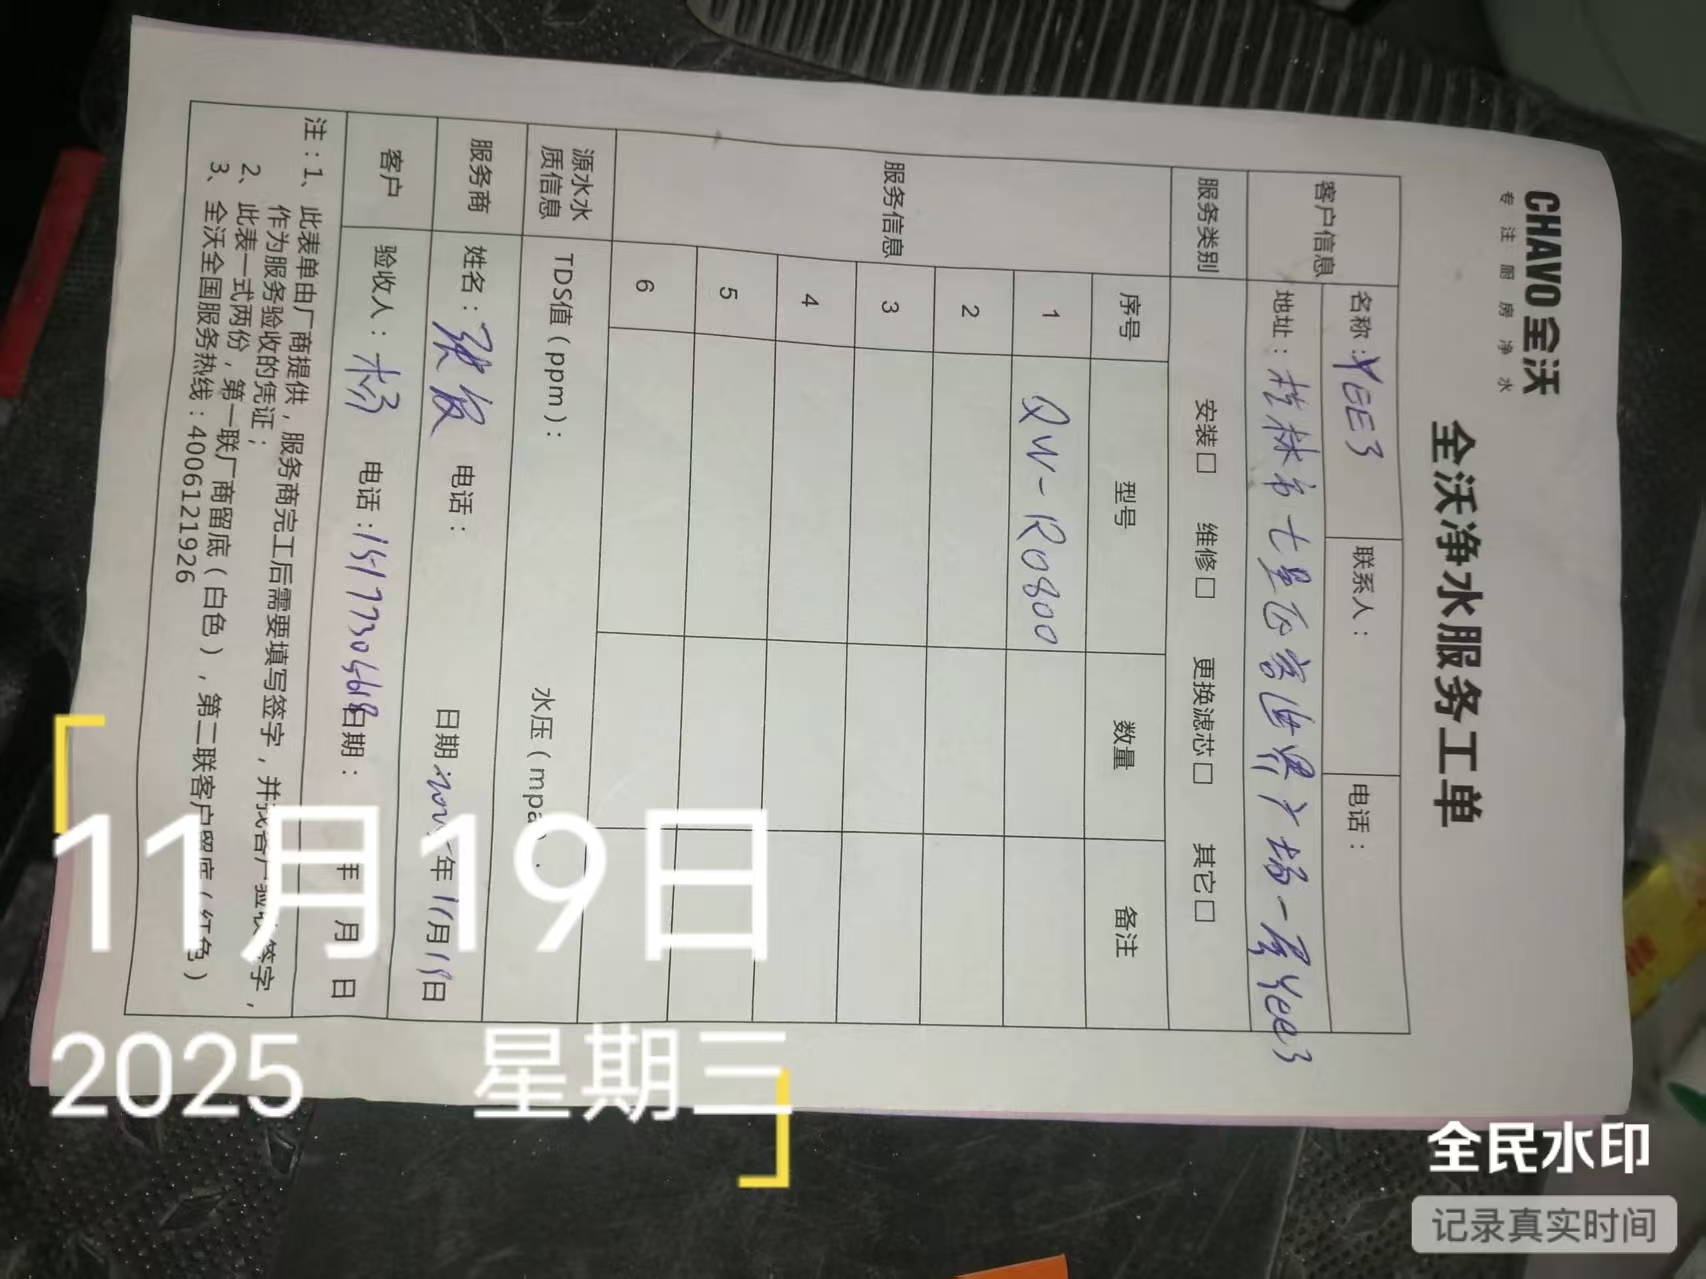 CHAVO 全沃
专注厨房净水
全沃净水服务工单
客户信息 名称：YEE3 联系人： 电话：
地址：桂林市七星区 广场一层Yee3
服务类别 安装□ 维修□ 更换滤芯□ 其它□
服务信息 序号 型号 数量 备注
1 QW-RO800
2
3
4
5
6
源水水质信息 TDS值（ppm）： 水压（mpa）：
服务商 姓名： 电话： 日期：2025年11月19日
客户 验收人：杨 电话：15177304618 日期： 年 月 日
注：1、此表单由厂商提供，服务商完工后需要填写签字，并找客户验收签字，
作为服务验收的凭证；
2、此表一式两份，第一联厂商留底（白色），第二联客户留底（红色）
3、全沃全国服务热线：4006121926
11月19日
2025 星期三
全民水印
记录真实时间